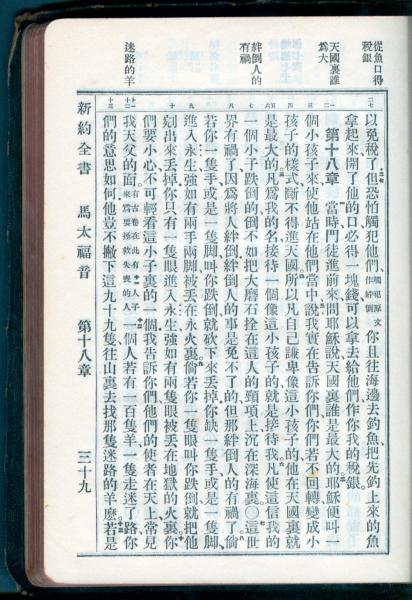 從魚口得
税銀
天國裏誰
爲大
絆倒人的
有禍
迷路的羊
以免税了但恐怕觸犯他們、觸犯原文作絆倒你且往海邊去釣魚把先釣上來的魚
拿起來開了他的口必得一塊錢可以拿去給他們作你我的税銀、
第十八章 當時門徒進前來問耶穌説天國裏誰是最大的耶穌便叫一
個小孩子來使他站在他們當中説我實在告訴你們你們若不回轉變成小
孩子的樣式、斷不得進天國所以凡自己謙卑像這小孩子的他在天國裏就
是最大的凡爲我的名接待一個像這小孩子的就是接待我凡使這信我的
一個小子跌倒的、倒不如把大磨石拴在這人的頸項上沉在深海裏、〇這世
界有禍了因爲將人絆倒絆倒人的事是免不了的但那絆倒人的有禍了倘
若你一隻手或是一隻脚叫你跌倒就砍下來丟掉你缺一隻手或是一隻脚、
進入永生強如有兩手兩脚被丟在永火裏倘若你一隻眼叫你跌倒就把他
剜出來丟掉你只有一隻眼進入永生強如有兩隻眼被丟在地獄的火裏你
們要小心不可輕看這小子裏的一個我告訴你們他們的使者在天上常見
我天父的面、有古卷在此有人子來爲要拯救失喪的人一個人若有一百隻羊一隻走迷了路你
們的意思如何他豈不撇下這九十九隻往山裏去找那隻迷路的羊麽若是
新約全書 馬太福音 第十八章 三十九